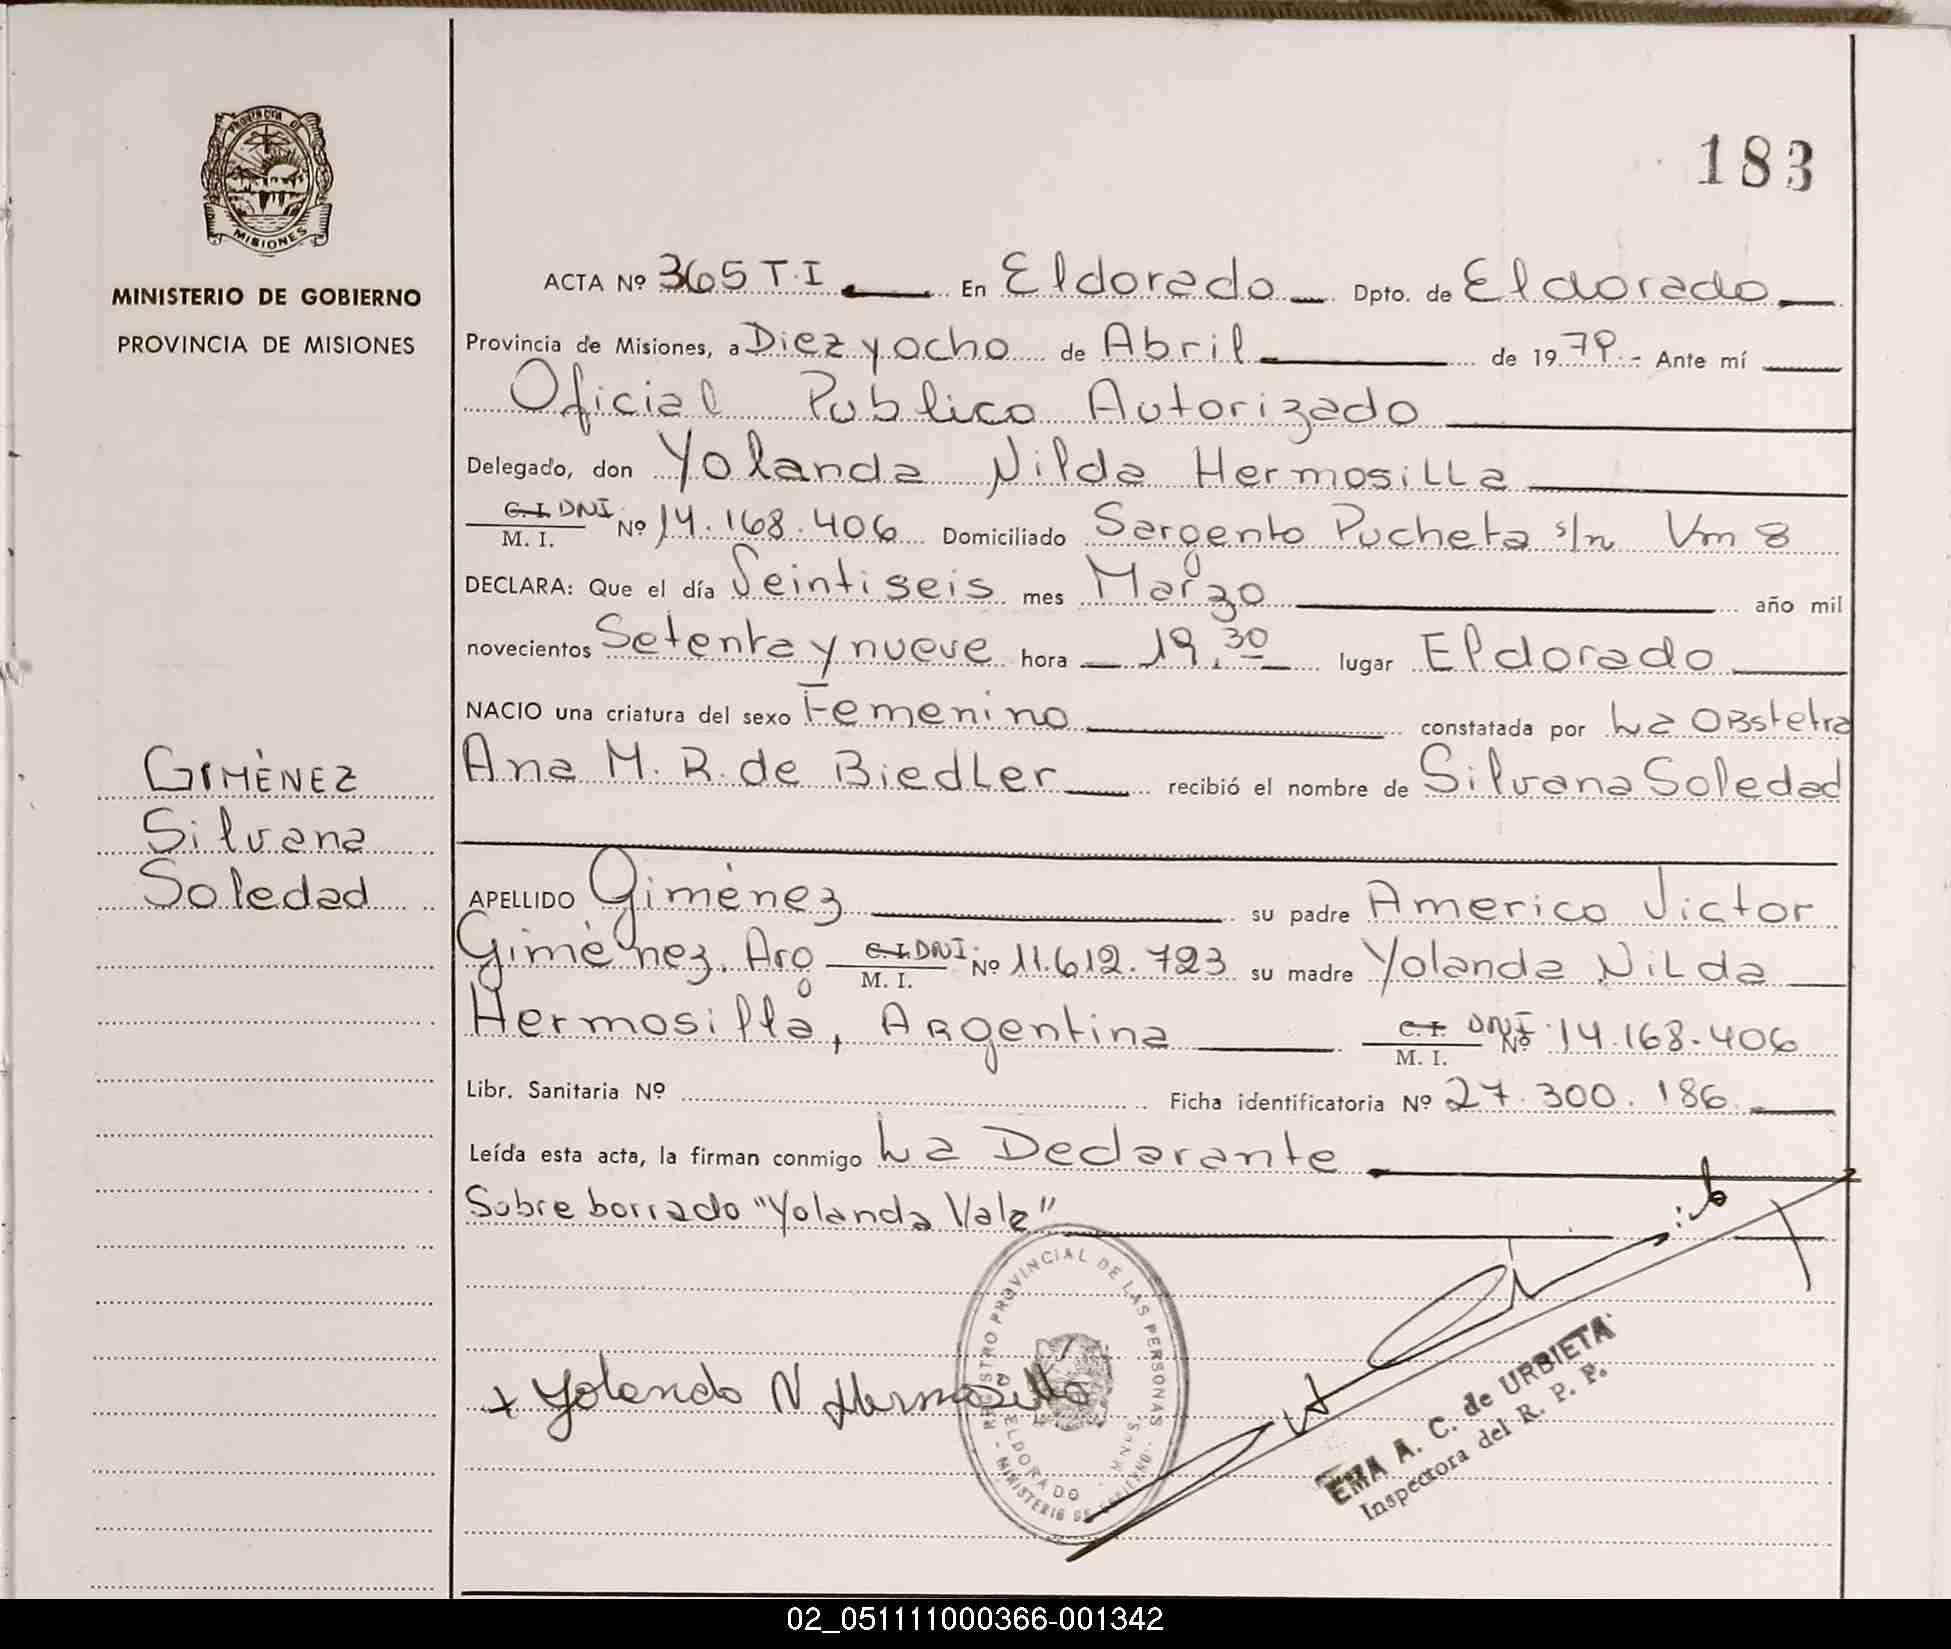 PROVINCIA DE
MISIONES
MINISTERIO DE GOBIERNO
PROVINCIA DE MISIONES
GIMÉNEZ
Silvana
Soledad
183
ACTA Nº 365 T.I En Eldorado Dpto. de Eldorado
Provincia de Misiones, a Diez y ocho de Abril de 1979.- Ante mí
Oficial Publico Autorizado
Delegado, don Yolanda Nilda Hermosilla
C. I. DNI
M. I. Nº 14.168.406 Domiciliado Sargento Pucheta s/n Km 8
DECLARA: Que el día Veintiseis mes Marzo año mil
novecientos Setenta y nueve hora 19.30 lugar Eldorado
NACIO una criatura del sexo Femenino constatada por La Obstetra
Ana M. R. de Biedler recibió el nombre de Silvana Soledad
APELLIDO Giménez su padre Americo Victor
Giménez. Arg C.I. DNI M. I. Nº 11.612.723 su madre Yolanda Nilda
Hermosilla, Argentina C. I. DNI M. I. Nº 14.168.406
Libr. Sanitaria Nº Ficha identificatoria Nº 27.300.186
Leída esta acta, la firman conmigo La Declarante
Sobre borrado "Yolanda Vale"
Yolanda N Hermosilla
REGISTRO PROVINCIAL DE LAS PERSONAS
ELDORADO MNES.
MINISTERIO DE GOBIERNO
EMA A. C. de URBIETA
Inspectora del R. P. P.
02_051111000366-001342